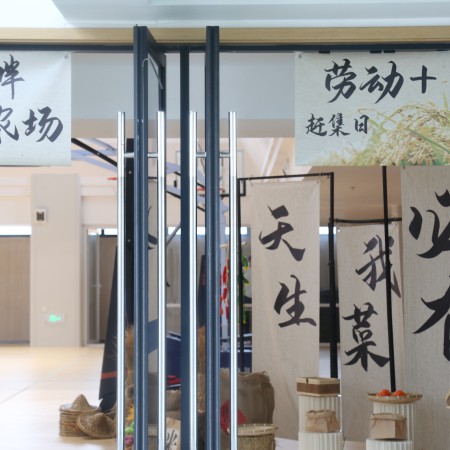 畔
农场
劳动十
赶集日
天生
我菜
必有